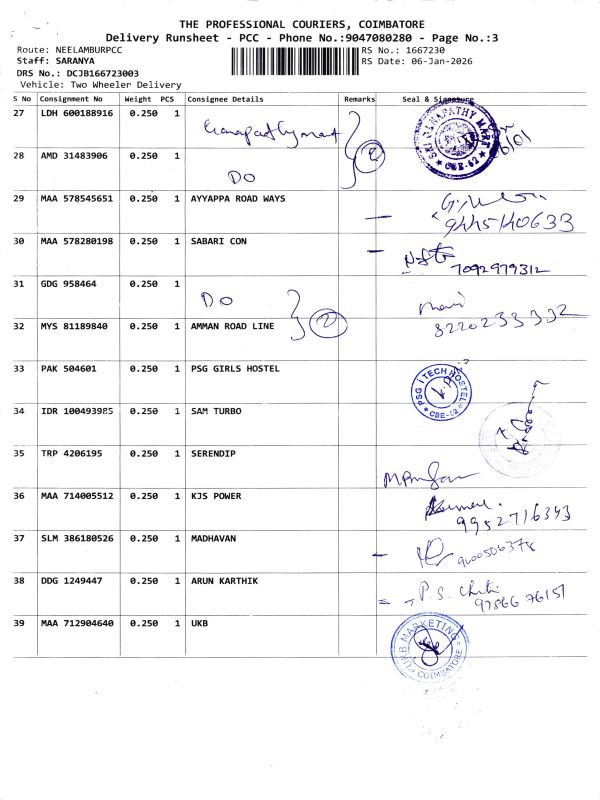 THE PROFESSIONAL COURIERS, COIMBATORE
Delivery Runsheet - PCC - Phone No.:9047080280 - Page No.:3
Route: NEELAMBURPCC RS No.: 1667230
Staff: SARANYA RS Date: 06-Jan-2026
DRS No.: DCJB166723003
Vehicle: Two Wheeler Delivery
S No Consignment No Weight PCS Consignee Details Remarks Seal & Signature
27 LDH 600188916 0.250 1 Ganapathy mart
SRI GANAPATHY MART CBE-62
28 AMD 31483906 0.250 1 DO 2
29 MAA 578545651 0.250 1 AYYAPPA ROAD WAYS
9445140633
30 MAA 578280198 0.250 1 SABARI CON
7092979312
31 GDG 958464 0.250 1 DO
32 MYS 81189840 0.250 1 AMMAN ROAD LINE 2 8220233332
33 PAK 504601 0.250 1 PSG GIRLS HOSTEL
PSG iTECH HOSTEL CBE-62
34 IDR 100493985 0.250 1 SAM TURBO
35 TRP 4206195 0.250 1 SERENDIP
36 MAA 714005512 0.250 1 KJS POWER
9952716343
37 SLM 386180526 0.250 1 MADHAVAN
9600506378
38 DDG 1249447 0.250 1 ARUN KARTHIK P.S.
97866 76151
39 MAA 712904640 0.250 1 UKB
UKB MARKETING COIMBATORE